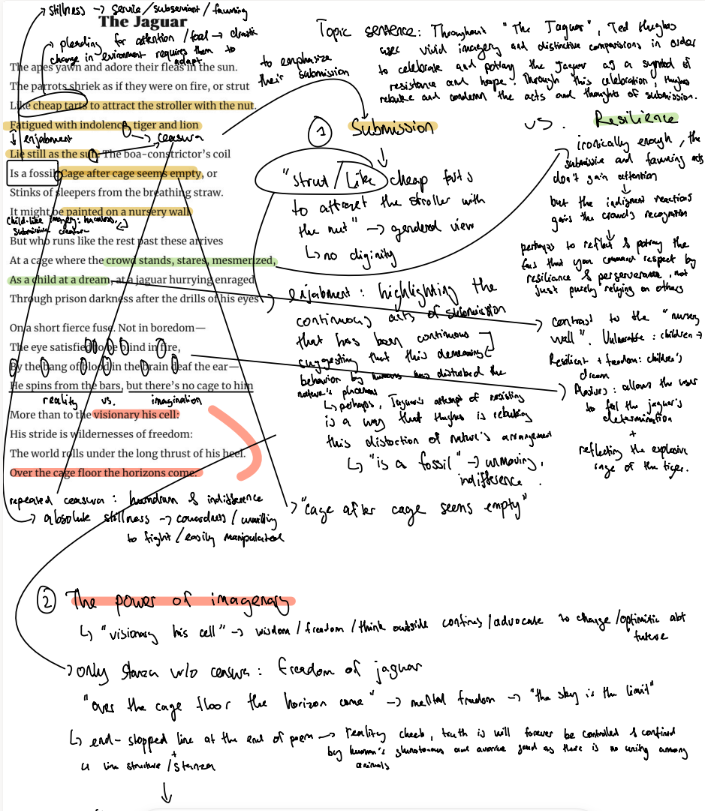 stillness → servile / subservient / fawning
The Jaguar
pleading for attention / food → drastic
change in enviroment requires them to
adapt
The apes yawn and adore their fleas in the sun.
The parrots shriek as if they were on fire, or strut
Like cheap tarts to attract the stroller with the nut.
Fatigued with indolence, tiger and lion
↓ enjabment
→ ceasura
Lie still as the sun. The boa-constrictor's coil
Is a fossil. Cage after cage seems empty, or
Stinks of sleepers from the breathing straw.
It might be painted on a nursery wall.
Child-like imagery: harmless,
submissive creature
But who runs like the rest past these arrives
At a cage where the crowd stands, stares, mesmerized,
As a child at a dream, at a jaguar hurrying enraged
Through prison darkness after the drills of his eyes
On a short fierce fuse. Not in boredom—
The eye satisfied to be blind in fire,
By the bang of blood in the brain deaf the ear—
He spins from the bars, but there's no cage to him
reality vs. imagination
More than to the visionary his cell:
His stride is wildernesses of freedom:
The world rolls under the long thrust of his heel.
Over the cage floor the horizons come.
repeated ceasura: humdrum & indifference
→ absolute stillness → cowardness / unwilling
to fight / easily manipulated
Topic sentence: Throughout "The Jaguar", Ted Hughes
uses vivid imagery and distinctive comparisons in order
to celebrate and portray the jaguar as a symbol of
resistance and hope. Through this celebration, Hughes
rebuke and condemn the acts and thoughts of submission.
to emphasize
their submission
① Submission
vs. Resilience
"strut / Like cheap tarts
to attract the stroller with
the nut" → gendered view
↳ no diginity
→ enjabment: highlighting the
continuous acts of submission
that has been continuous
suggesting that this demeaning
behavior by humans has disturbed the
nature's placement
↳ perhaps, Jaguar's attempt of resisting
is a way that Hughes is rebuking
this distortion of nature's arrangement
↳ "is a fossil" → unmoving,
indifference.
→ "cage after cage seems empty"
ironically enough, the
submissive and fawning acts
don't gain attention
↓
but the indignant reactions
gains the crowd's recognition
↓
perhaps to reflect & portray the
fact that you command respect by
resiliance & perserverance, not
just purely relying on others
→ contrast to the "nursery
wall". Vulnerable: children →
Resilient + freedom: children's
dream
→ Plosives: allows the user
to feel the jaguar's
determination
+
reflecting the explosive
rage of the tiger.
② The power of imagenary
↳ "visionary his cell" → wisdom / freedom / think outside confines / advocate to change / optimistic abt
future
→ only stanza w/o censura: freedom of jaguar
"over the cage floor the horizon come" → mental freedom → "the sky is the limit"
↳ end-stopped line at the end of poem → reality check, truth is will forever be controlled & confined
by human's and avarice as there is no unity among
animals
4 line structure / stanza
+
↓